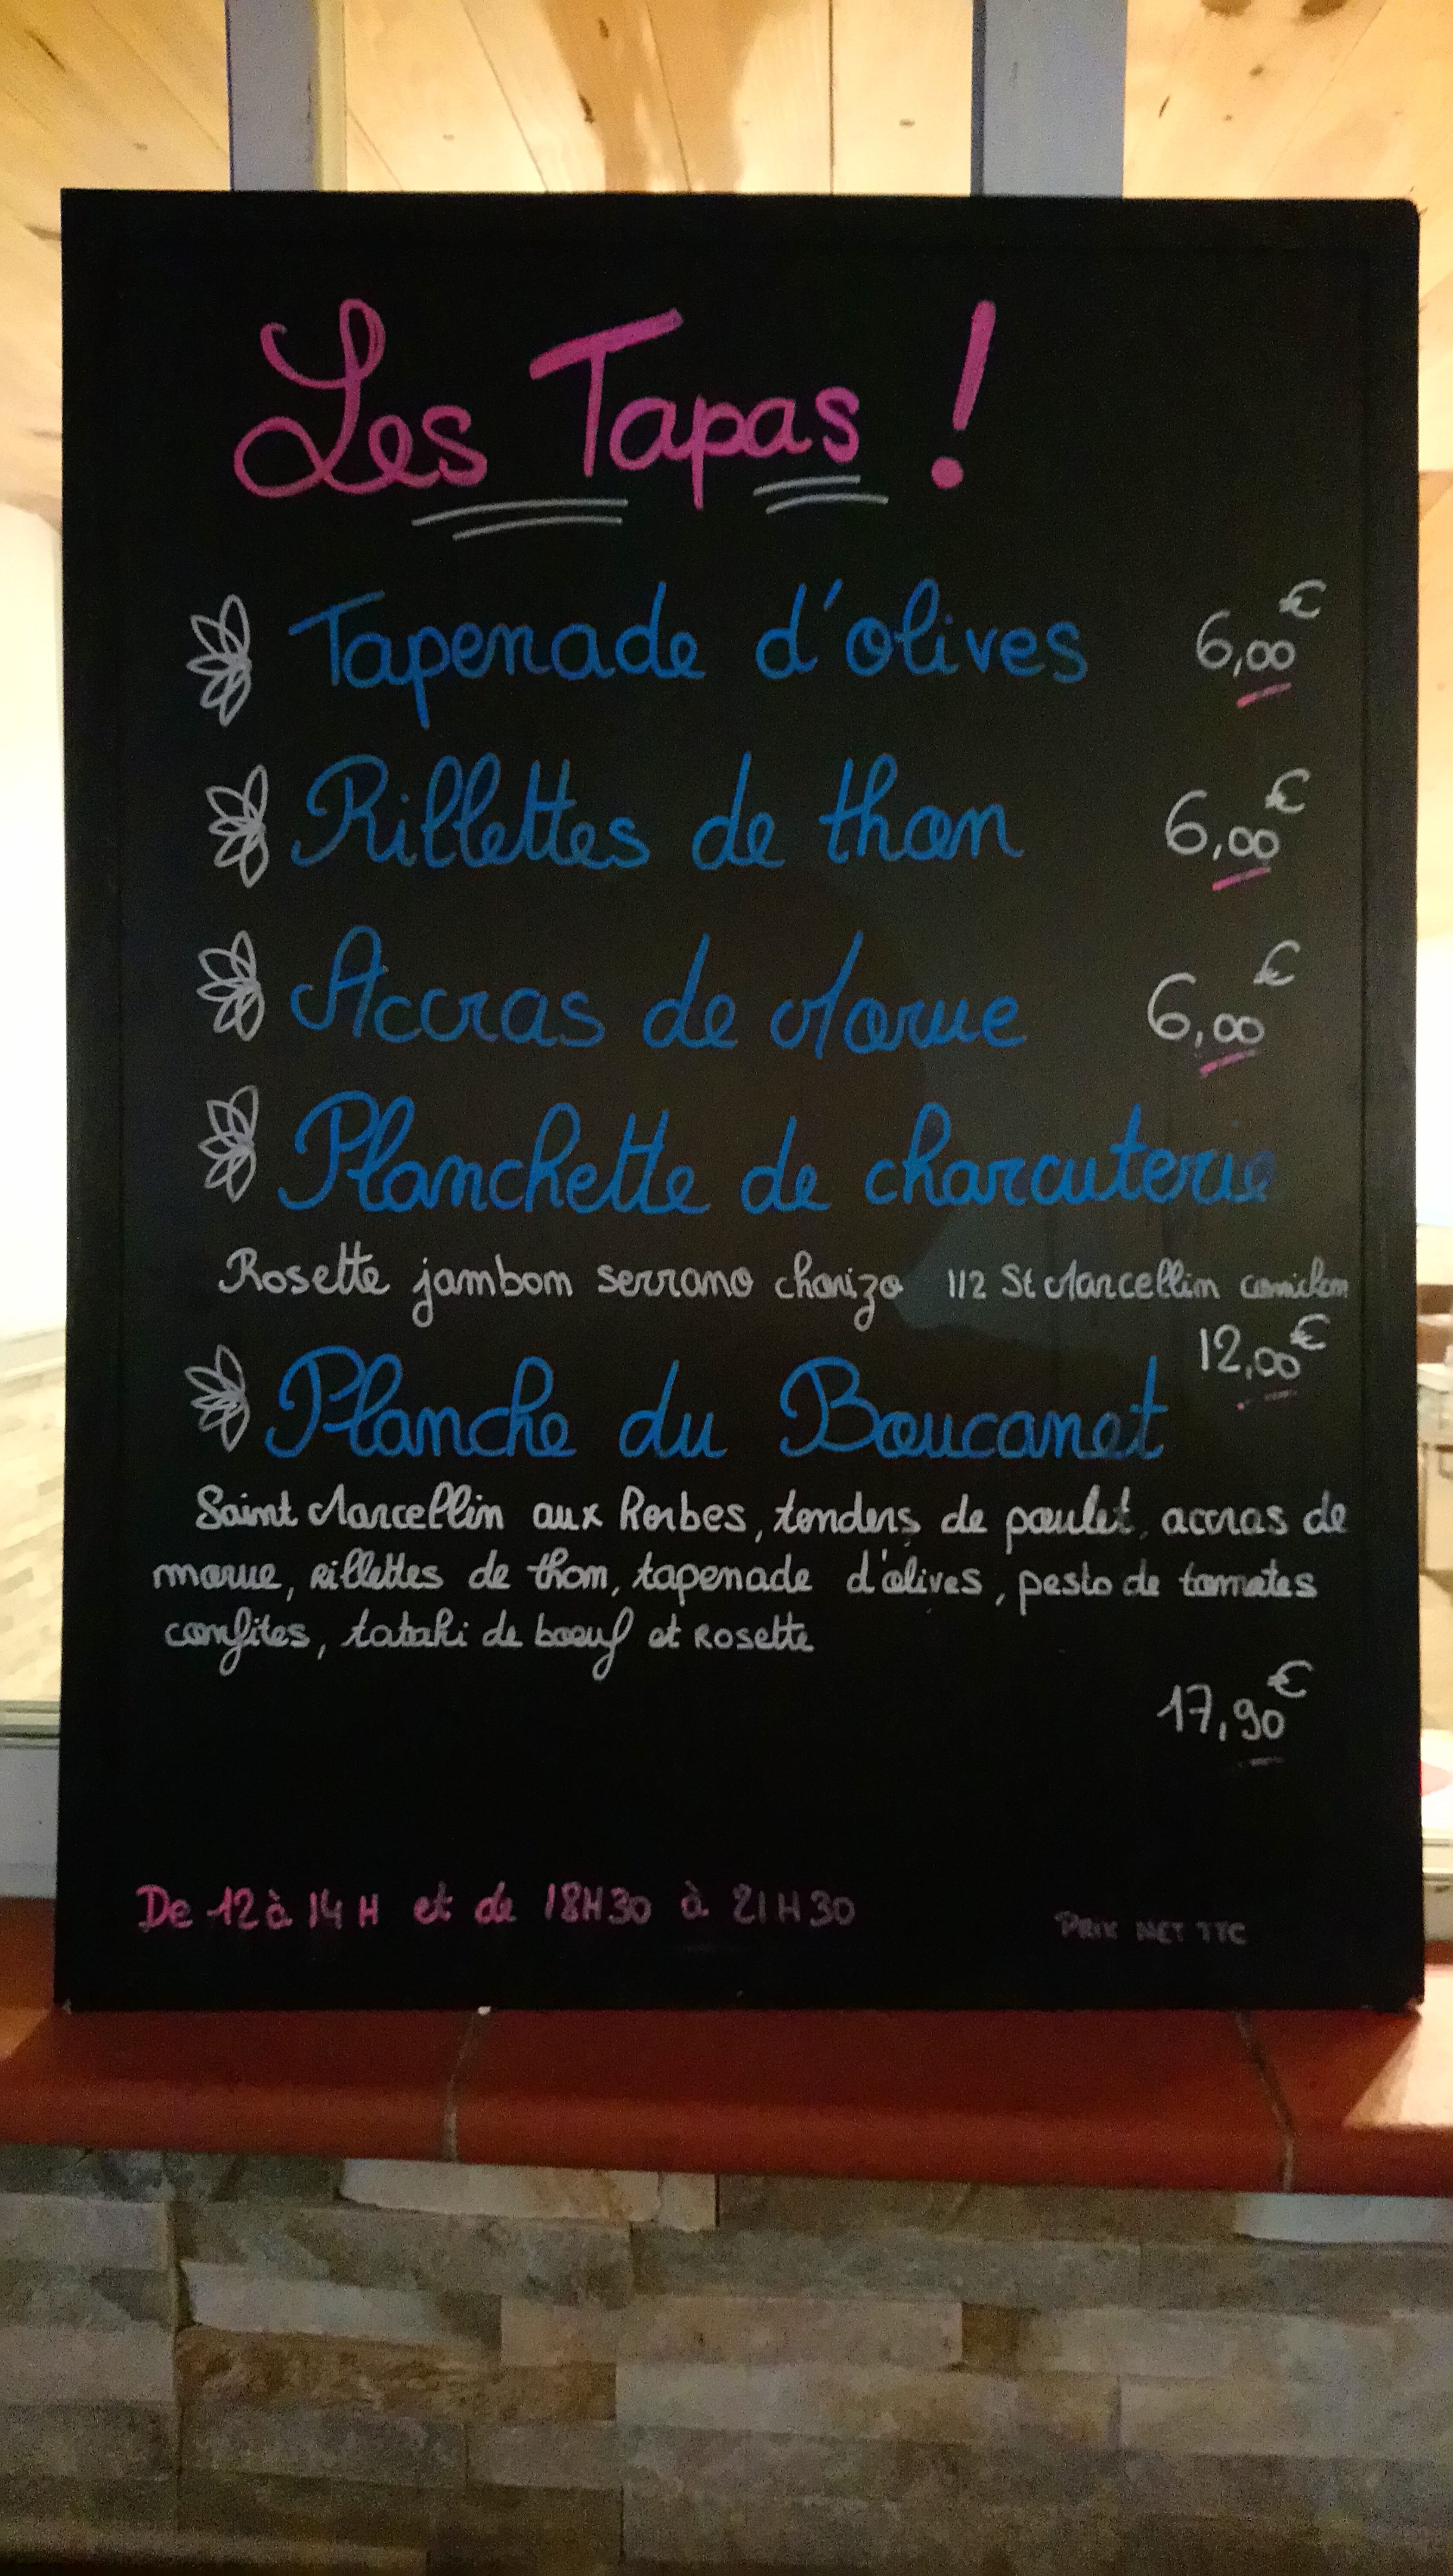 Les Tapas !
Tapenade d'olives 6,00€
Rillettes de thon 6,00€
Accras de Morue 6,00€
Planchette de charcuterie
Rosette jambon serrano chorizo 1/2 St Marcellin cornichon
12,00€
Planche du Boucanet
Saint Marcellin aux herbes, tenders de poulet, accras de
morue, rillettes de thon, tapenade d'olives, pesto de tomates
confites, tataki de boeuf et Rosette
17,90€
De 12 à 14 H et de 18H30 à 21H30
PRIX NET TTC